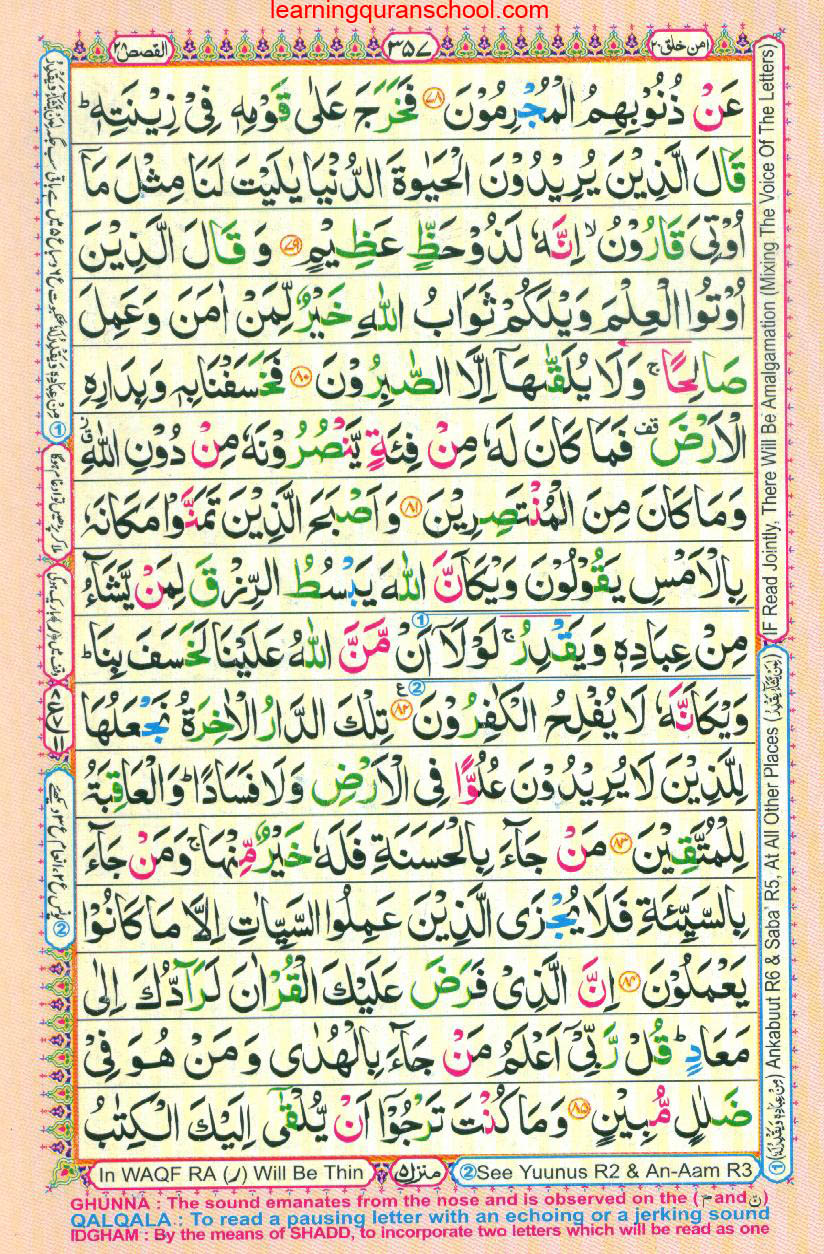 learningquranschool.com
امن خلق ٢٠
٣٥٧
القصص ٢٨
عَنْ ذُنُوْبِهِمُ الْمُجْرِمُوْنَ ﴿٧٨﴾ فَخَرَجَ عَلٰى قَوْمِهٖ فِىْ زِيْنَتِهٖ ؕ
قَالَ الَّذِيْنَ يُرِيْدُوْنَ الْحَيٰوةَ الدُّنْيَا يٰلَيْتَ لَنَا مِثْلَ مَاۤ
اُوْتِىَ قَارُوْنُ ۙ اِنَّهٗ لَذُوْ حَظٍّ عَظِيْمٍ ﴿٧٩﴾ وَ قَالَ الَّذِيْنَ
اُوْتُوا الْعِلْمَ وَيْلَكُمْ ثَوَابُ اللّٰهِ خَيْرٌ لِّمَنْ اٰمَنَ وَعَمِلَ
صَالِحًا ۚ وَلَا يُلَقّٰىهَاۤ اِلَّا الصّٰبِرُوْنَ ﴿٨٠﴾ فَخَسَفْنَا بِهٖ وَبِدَارِهِ
الْاَرْضَ قف فَمَا كَانَ لَهٗ مِنْ فِئَةٍ يَّنْصُرُوْنَهٗ مِنْ دُوْنِ اللّٰهِ
وَمَا كَانَ مِنَ الْمُنْتَصِرِيْنَ ﴿٨١﴾ وَ اَصْبَحَ الَّذِيْنَ تَمَنَّوْا مَكَانَهٗ
بِالْاَمْسِ يَقُوْلُوْنَ وَيْكَاَنَّ اللّٰهَ يَبْسُطُ الرِّزْقَ لِمَنْ يَّشَآءُ
مِنْ عِبَادِهٖ وَيَقْدِرُ ۚ لَوْلَاۤ اَنْ مَّنَّ اللّٰهُ عَلَيْنَا لَخَسَفَ بِنَا ؕ
وَيْكَاَنَّهٗ لَا يُفْلِحُ الْكٰفِرُوْنَ ﴿٨٢﴾ تِلْكَ الدَّارُ الْاٰخِرَةُ نَجْعَلُهَا
لِلَّذِيْنَ لَا يُرِيْدُوْنَ عُلُوًّا فِى الْاَرْضِ وَلَا فَسَادًا ؕ وَالْعَاقِبَةُ
لِلْمُتَّقِيْنَ ﴿٨٣﴾ مَنْ جَآءَ بِالْحَسَنَةِ فَلَهٗ خَيْرٌ مِّنْهَا ۚ وَمَنْ جَآءَ
بِالسَّيِّئَةِ فَلَا يُجْزَى الَّذِيْنَ عَمِلُوا السَّيِّاٰتِ اِلَّا مَا كَانُوْا
يَعْمَلُوْنَ ﴿٨٤﴾ اِنَّ الَّذِىْ فَرَضَ عَلَيْكَ الْقُرْاٰنَ لَرَآدُّكَ اِلٰى
مَعَادٍ ؕ قُلْ رَّبِّىْۤ اَعْلَمُ مَنْ جَآءَ بِالْهُدٰى وَ مَنْ هُوَ فِىْ
ضَلٰلٍ مُّبِيْنٍ ﴿٨٥﴾ وَمَا كُنْتَ تَرْجُوْۤا اَنْ يُّلْقٰٓى اِلَيْكَ الْكِتٰبُ
IF Read Jointly, There Will Be Amalgamation (Mixing The Voice Of The Letters)
① (مِنْ عِبَادِهٖ وَيَقْدِرُ لَهٗ) Ankabuut R6 & Saba' R5, At All Other Places (لِمَنْ يَّشَآءُ وَيَقْدِرُ)
In WAQF RA (ر) Will Be Thin
منزل ٥
②See Yuunus R2 & An-Aam R3
GHUNNA : The sound emanates from the nose and is observed on the (م and ن)
QALQALA : To read a pausing letter with an echoing or a jerking sound
IDGHAM : By the means of SHADD, to incorporate two letters which will be read as one